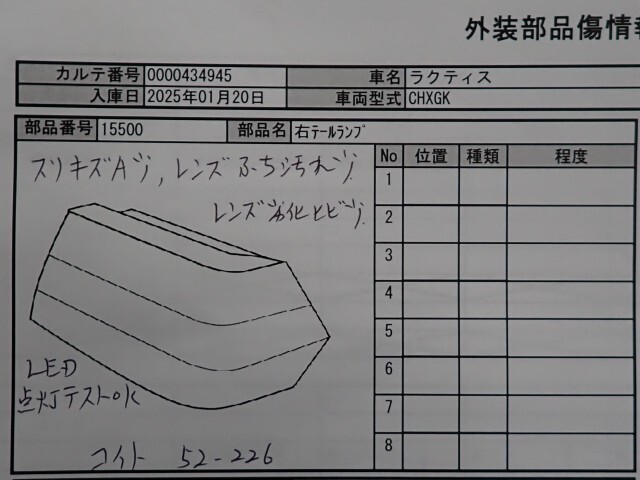 外装部品傷情報
カルテ番号 0000434945 車名 ラクティス
入庫日 2025年01月20日 車両型式 CHXGK
部品番号 15500 部品名 右ﾃｰﾙﾗﾝﾌﾟ
スリキズAツ, レンズふち汚れツ
レンズ劣化ヒビツ
LED
点灯テストOK
コイト 52-226
No 位置 種類 程度
1
2
3
4
5
6
7
8